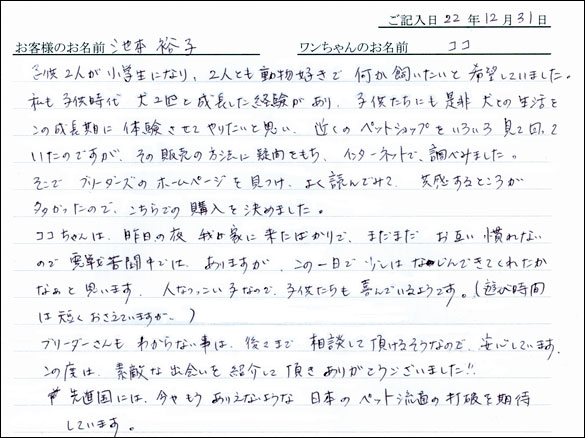 ご記入日 22 年 12 月 31 日
お客様のお名前 池本 裕子 ワンちゃんのお名前 ココ
子供2人が小学生になり、2人とも動物好きで何か飼いたいと希望していました。
私も子供時代 犬2匹と成長した経験があり、子供たちにも是非犬との生活を
この成長期に体験させてやりたいと思い、近くのペットショップをいろいろ見て回って
いたのですが、その販売の方法に疑問をもち、インターネットで、調べみました。
そこでブリーダーズのホームページを見つけ、よく読んでみて、共感するところが
多かったので、こちらでの購入を決めました。
ココちゃんは、昨日の夜 我が家に来たばかりで、まだまだ お互い慣れない
ので悪戦苦闘中では、ありますが、この一日で少しはなじんできてくれたか
なぁと思います。人なつっこい子なので、子供たちも喜んでいるようです。(遊び時間
は短くおさえていますが。)
ブリーダーさんも わからない事は、後々まで 相談して頂けるそうなので、安心しています。
この度は、素敵な出会いを紹介して頂きありがとうございました!!
先進国には、今やもうありえないような 日本のペット流通の打破を期待
しています。